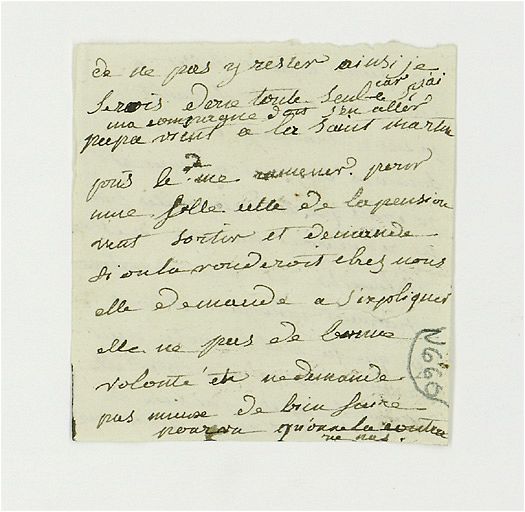 de ne pas y rester ainsi je
serois donc toute seule car si j'ai
ma compagne dois s'en aller
papa vient a la saint martin
pour me ramener. pour
une fille elle de la pension
veut sortir et demande
si on la voudroit chez nous
elle demande a s'expliquer
elle na pas de bonne
volonté et ne demande
pas mieux de bien faire
pourvu qu'on ne la contra
rie pas.
N660